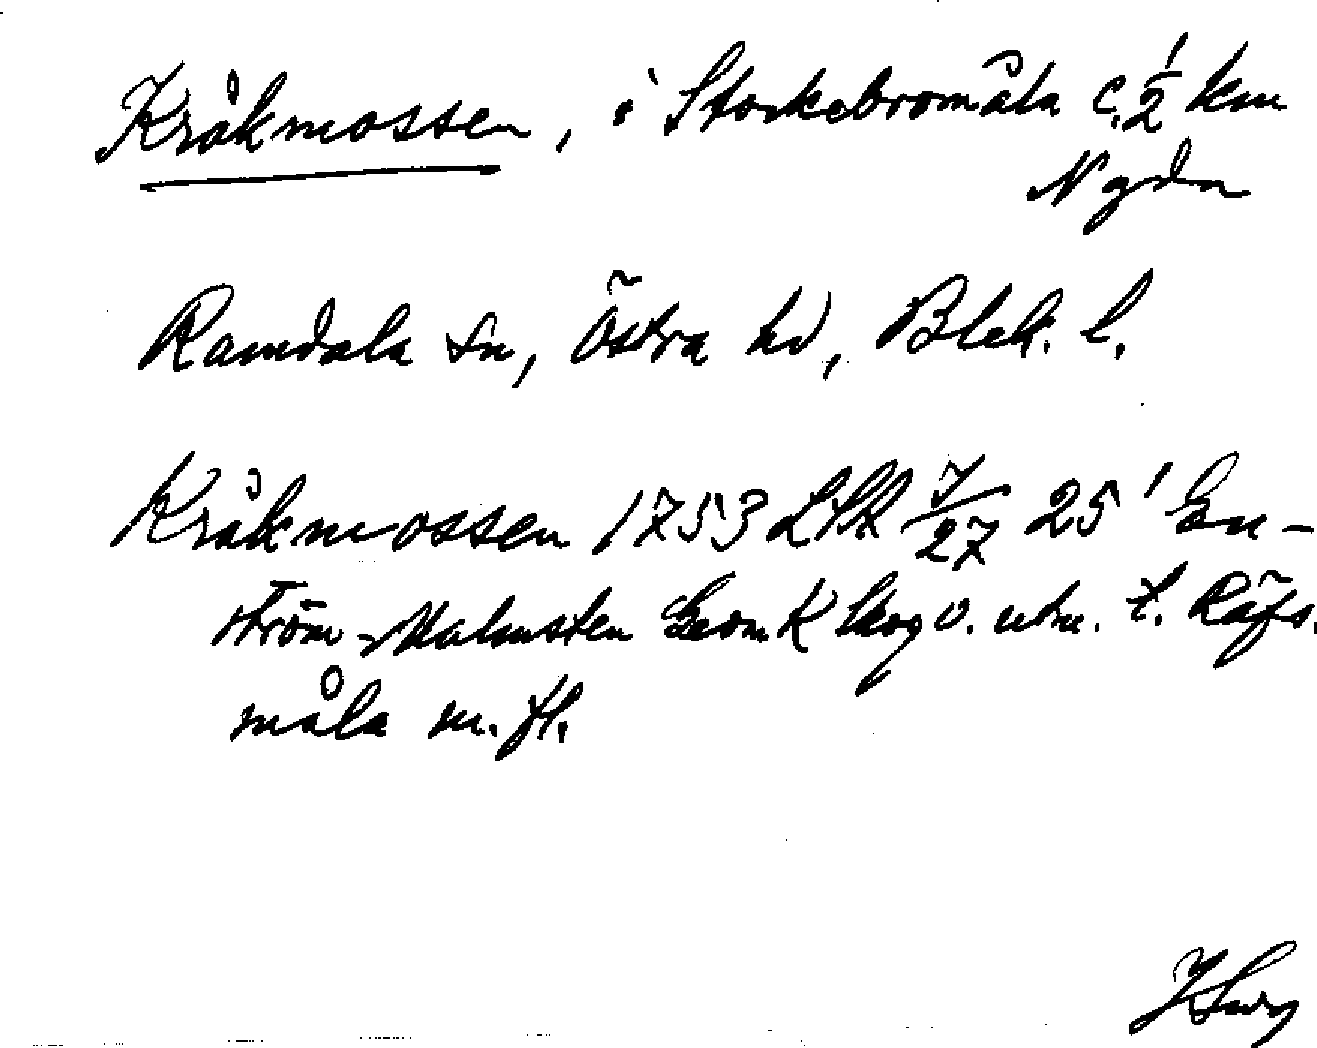 Kråkmossen, i Storkebromåla c. 1/2 km
N gdn
Ramdala sn, Östra hd, Blek. l.
Kråkmossen 1753 LSA 7/27 25' En-
ström-Malmsten Geom K Skog o. utm. t. Räfs.
måla m. fl.